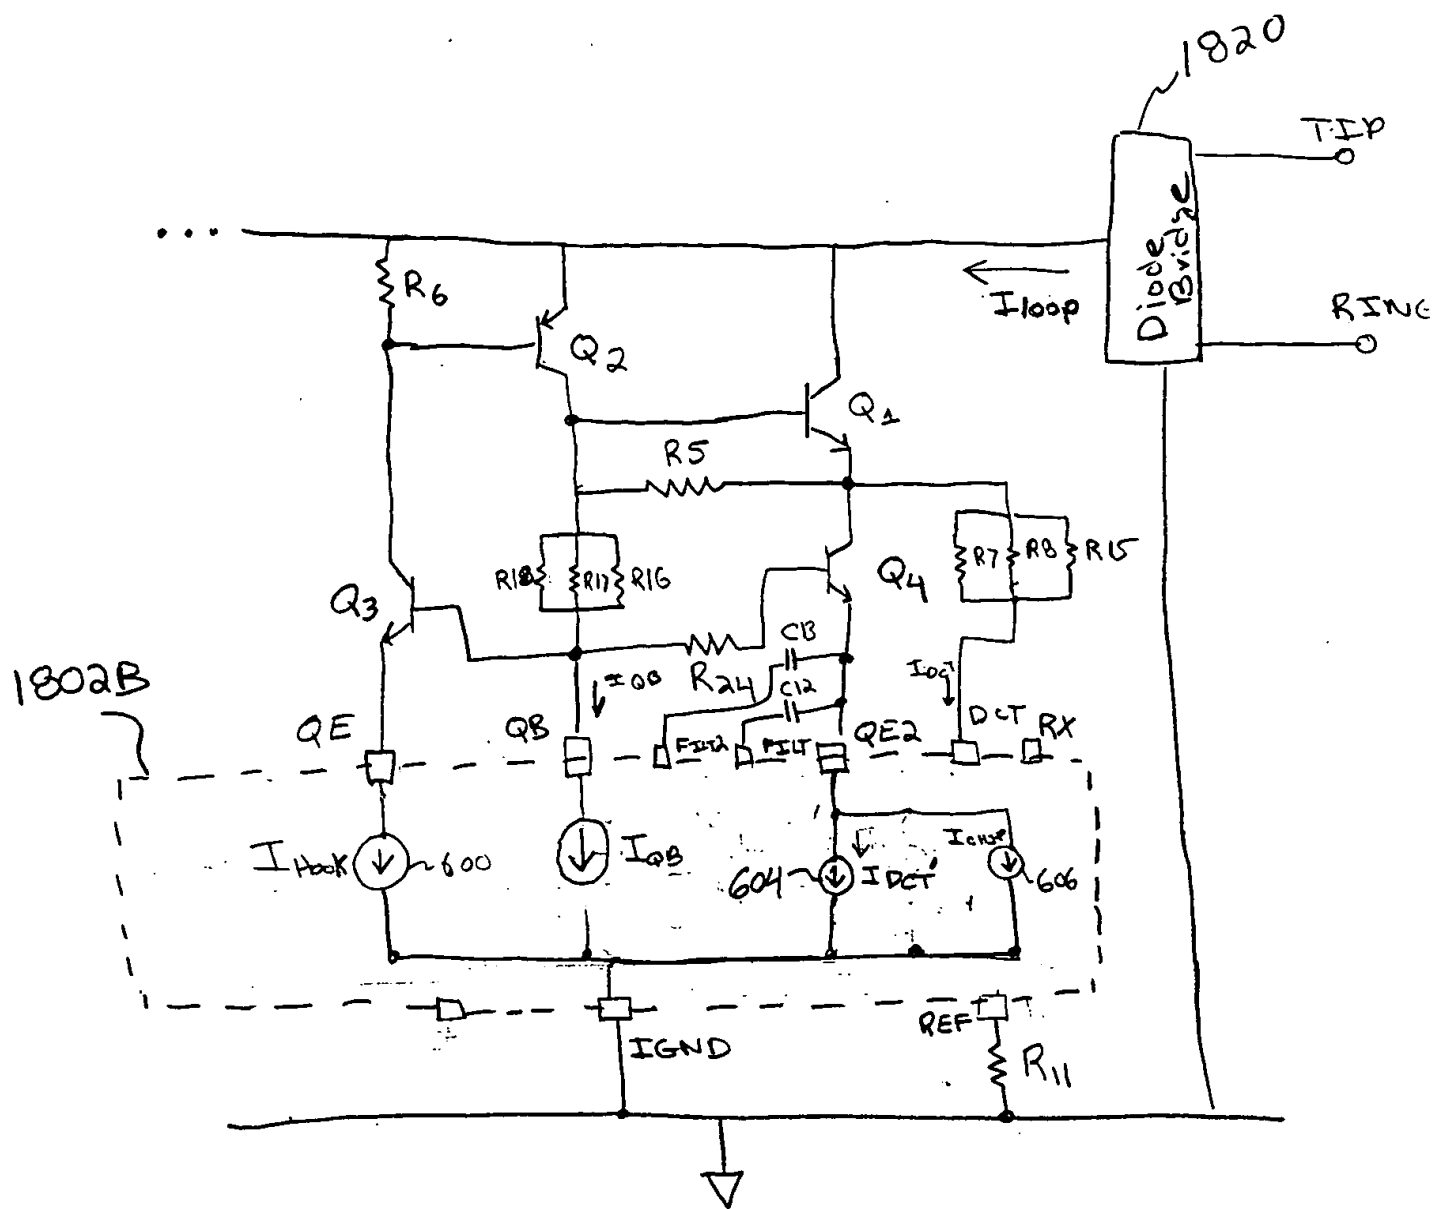 1820
TIP
...
R6
Iloop
Diode Bridge
RING
Q2
Q1
R5
R18
R17
R16
Q4
R7
R8
R15
Q3
C13
R24
IQB
C12
IDCT
1802B
QE
QB
FILT2
FILT
QE2
DCT
RX
IHOOK
600
IQB
604
IDCT'
ICHIP
606
IGND
REF
R11